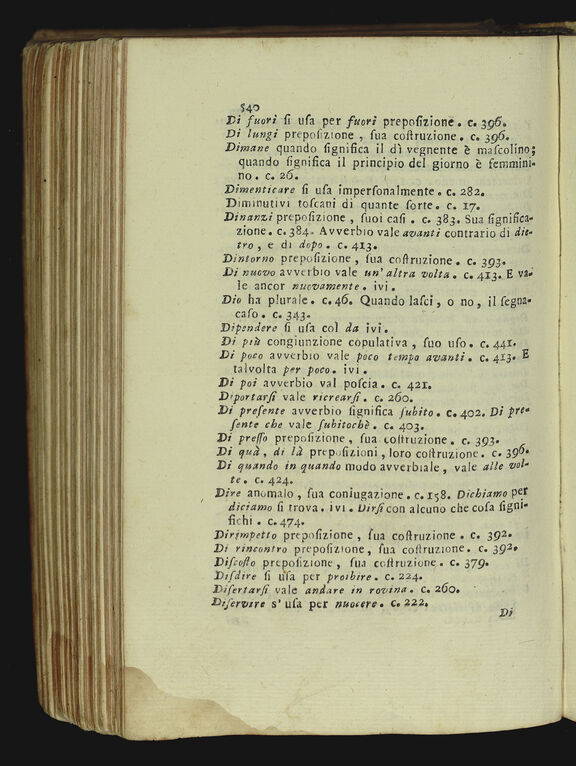 540
Di fuori ſi uſa per fuori prepoſizione. c. 396.
Di lungi prepoſizione, ſua coſtruzione. c. 396.
Dimane quando ſignifica il dì vegnente è maſcolino;
quando ſignifica il principio del giorno è femmini-
no. c. 26.
Dimenticare ſi uſa imperſonalmente. c. 282.
Diminutivi toſcani di quante ſorte. c. 17.
Dinanzi prepoſizione, ſuoi caſi. c. 383. Sua ſignifica-
zione. c. 384. Avverbio vale avanti contrario di die-
tro, e di dopo. c. 413.
Dintorno prepoſizione, ſua coſtruzione. c. 393.
Di nuovo avverbio vale un' altra volta. c. 413. E va-
le ancor nuovamente. ivi.
Dio ha plurale. c. 46. Quando laſci, o no, il ſegna-
caſo. c. 343.
Dipendere ſi uſa col da ivi.
Di più congiunzione copulativa, ſuo uſo. c. 441.
Di poco avverbio vale poco tempo avanti. c. 413. E
talvolta per poco. ivi.
Di poi avverbio val poſcia. c. 421.
Diportarſi vale ricrearſi. c. 260.
Di preſente avverbio ſignifica ſubito. c. 402. Di pre-
ſente che vale ſubitochè. c. 403.
Di preſſo prepoſizione, ſua coſtruzione. c. 393.
Di quà, di là prepoſizioni, loro coſtruzione. c. 396.
Di quando in quando modo avverbiale, vale alle vol-
te. c. 424.
Dire anomalo, ſua coniugazione. c. 158. Dichiamo per
diciamo ſi trova. ivi. Dirſi con alcuno che coſa ſigni-
fichi. c. 474.
Dirimpetto prepoſizione, ſua coſtruzione. c. 392.
Di rincontro prepoſizione, ſua coſtruzione. c. 392.
Diſcoſto prepoſizione, ſua coſtruzione. c. 379.
Diſdire ſi uſa per proibire. c. 224.
Diſertarſi vale andare in rovina. c. 260.
Diſervire s' uſa per nuocere. c. 222.
Di